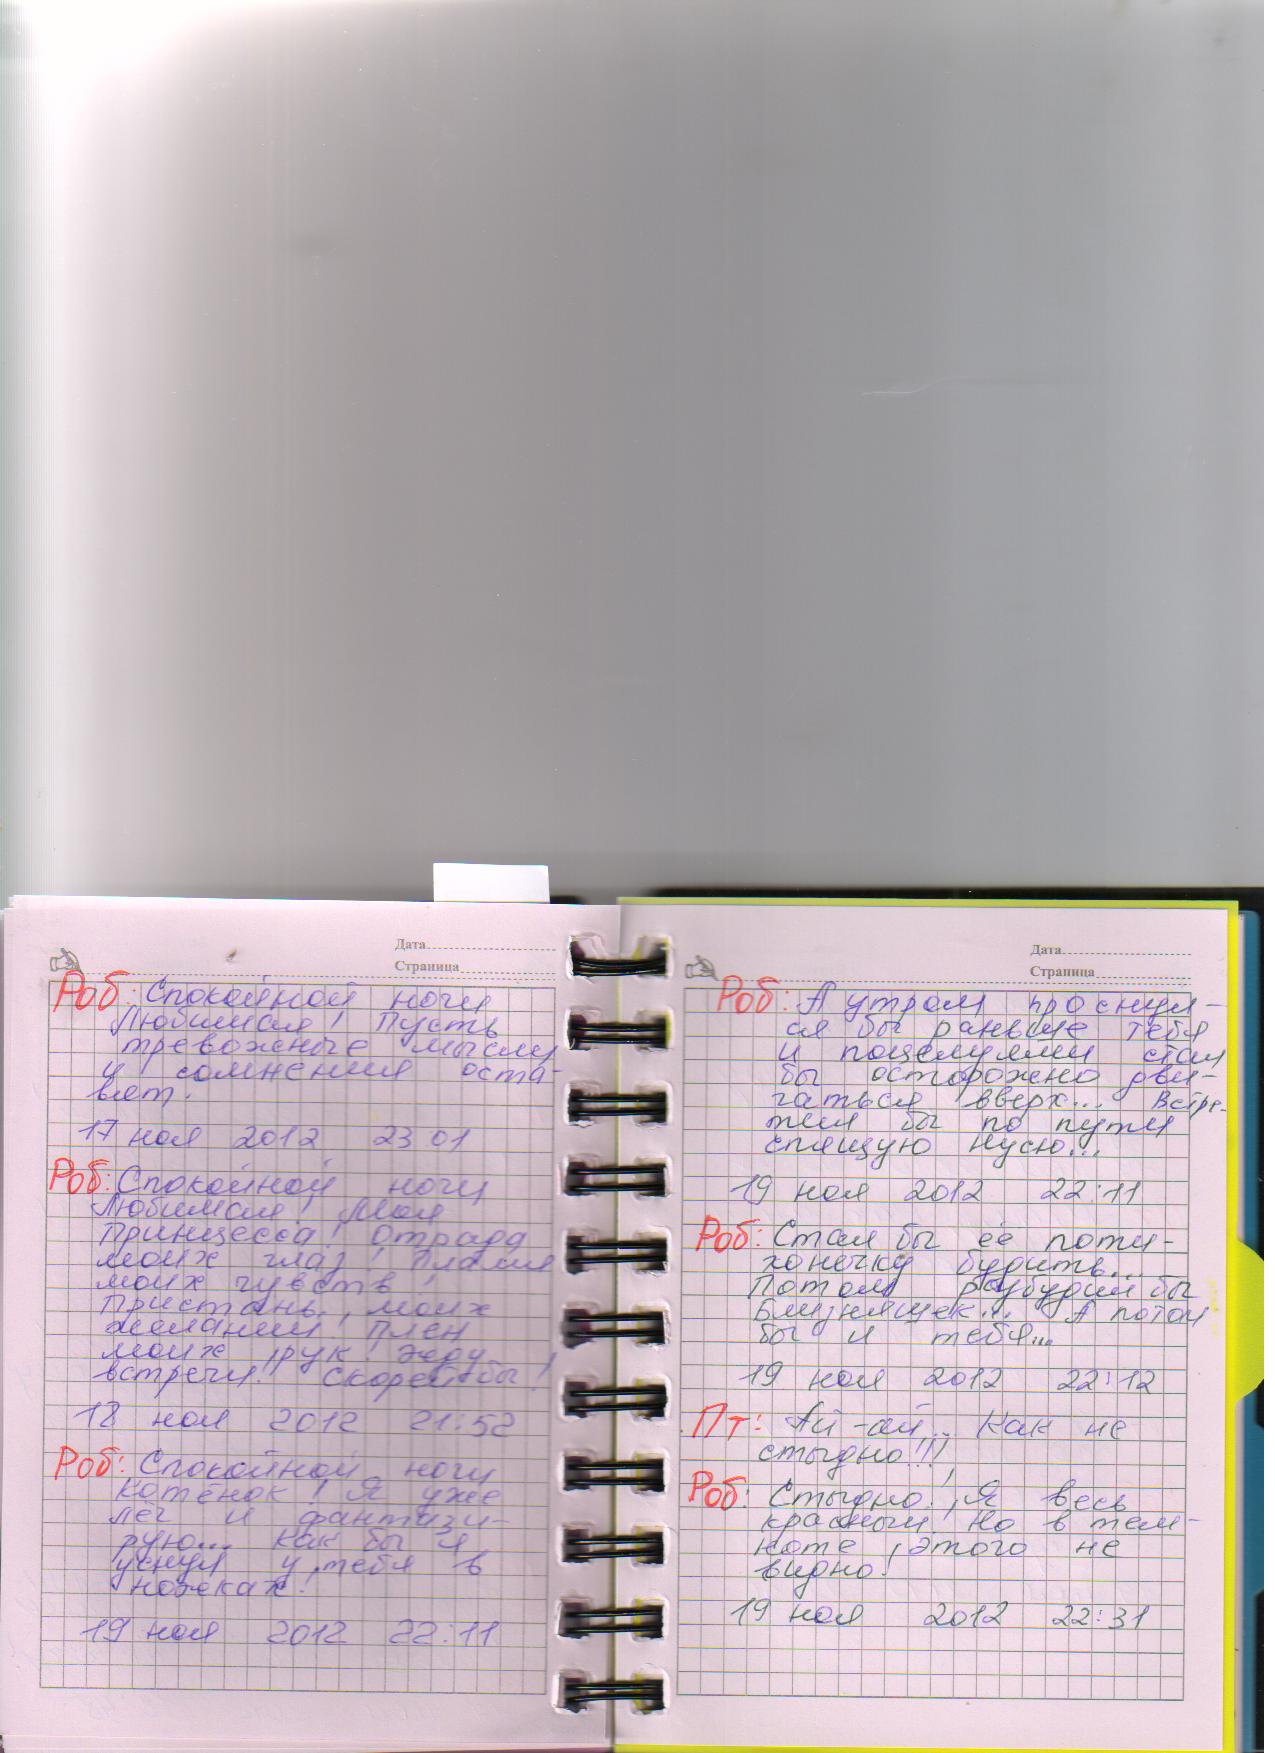 Дата
Страница
Роб: Спокойной ночи
Любимая! Пусть
тревожные мысли
и сомнения оста-
вят.
17 ноя 2012 23 01
Роб: Спокойной ночи
Любимая! Моя
Принцесса! Отрада
моих глаз! Пламя
моих чувств!
Пристань моих
желаний! Плен
моих рук! Жду
встречи! Скорей бы!
18 ноя 2012 21:52
Роб: Спокойной ночи
Котёнок! Я уже
лёг и фантази-
рую... Как бы я
уснул у тебя в
ножках!
19 ноя 2012 22:11
Дата
Страница
Роб: А утром проснул-
ся бы раньше тебя
и поцелуями стал
бы осторожно дви-
гаться вверх... Встре-
тил бы по пути
спящую Нусю...
19 ноя 2012 22:11
Роб: Стал бы её поти-
хонечку будить...
Потом разбудил бы
Близняшек... А потом
бы и тебя...
19 ноя 2012 22:12
Пт: Ай-ай... Как не
стыдно!!!
Роб: Стыдно! Я весь
красный! Но в тем-
ноте этого не
видно!
19 ноя 2012 22:31